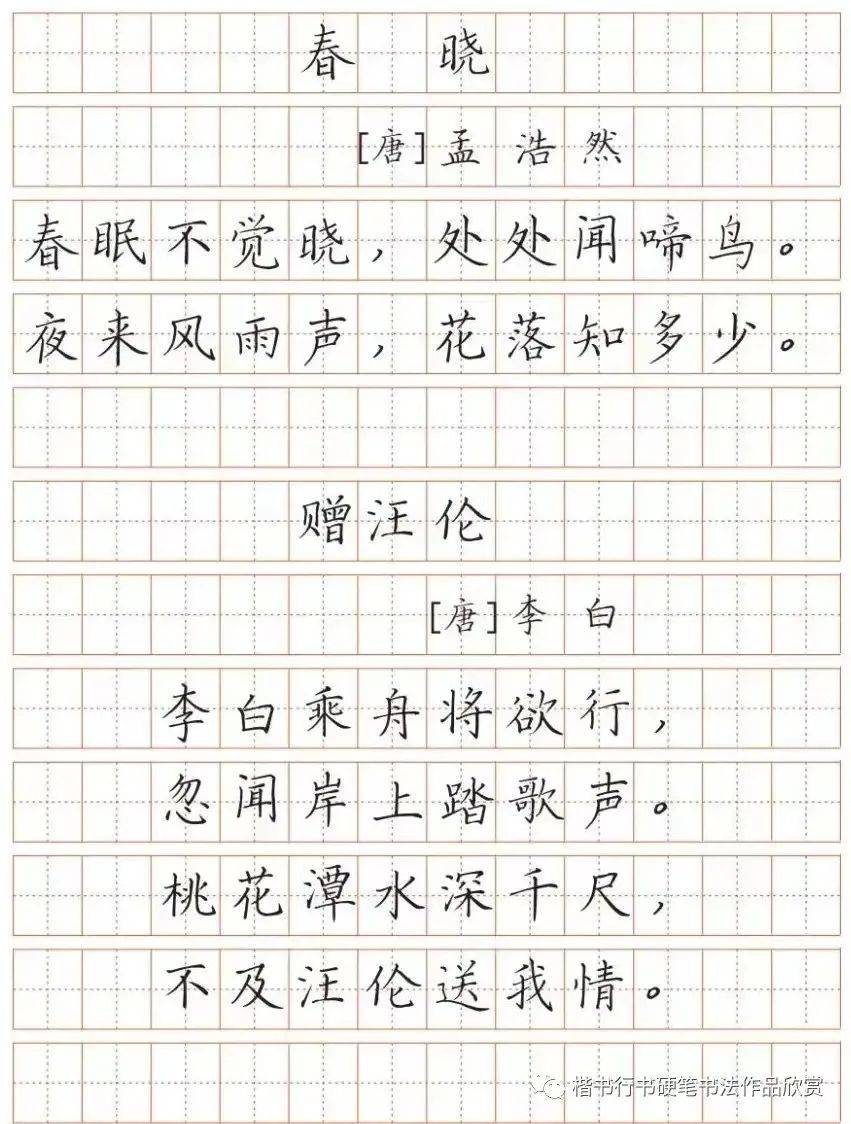 春晓
[唐]孟浩然
春眠不觉晓，处处闻啼鸟。
夜来风雨声，花落知多少。
赠汪伦
[唐]李白
李白乘舟将欲行，
忽闻岸上踏歌声。
桃花潭水深千尺，
不及汪伦送我情。
楷书行书硬笔书法作品欣赏